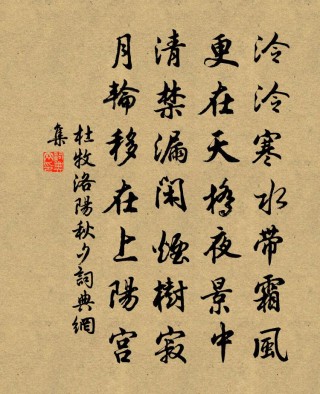 泠泠寒水带霜風
更在天橋夜景中
清禁漏闲煙樹寂
月輪移在上陽宫
杜牧洛陽秋夕詞典網
集